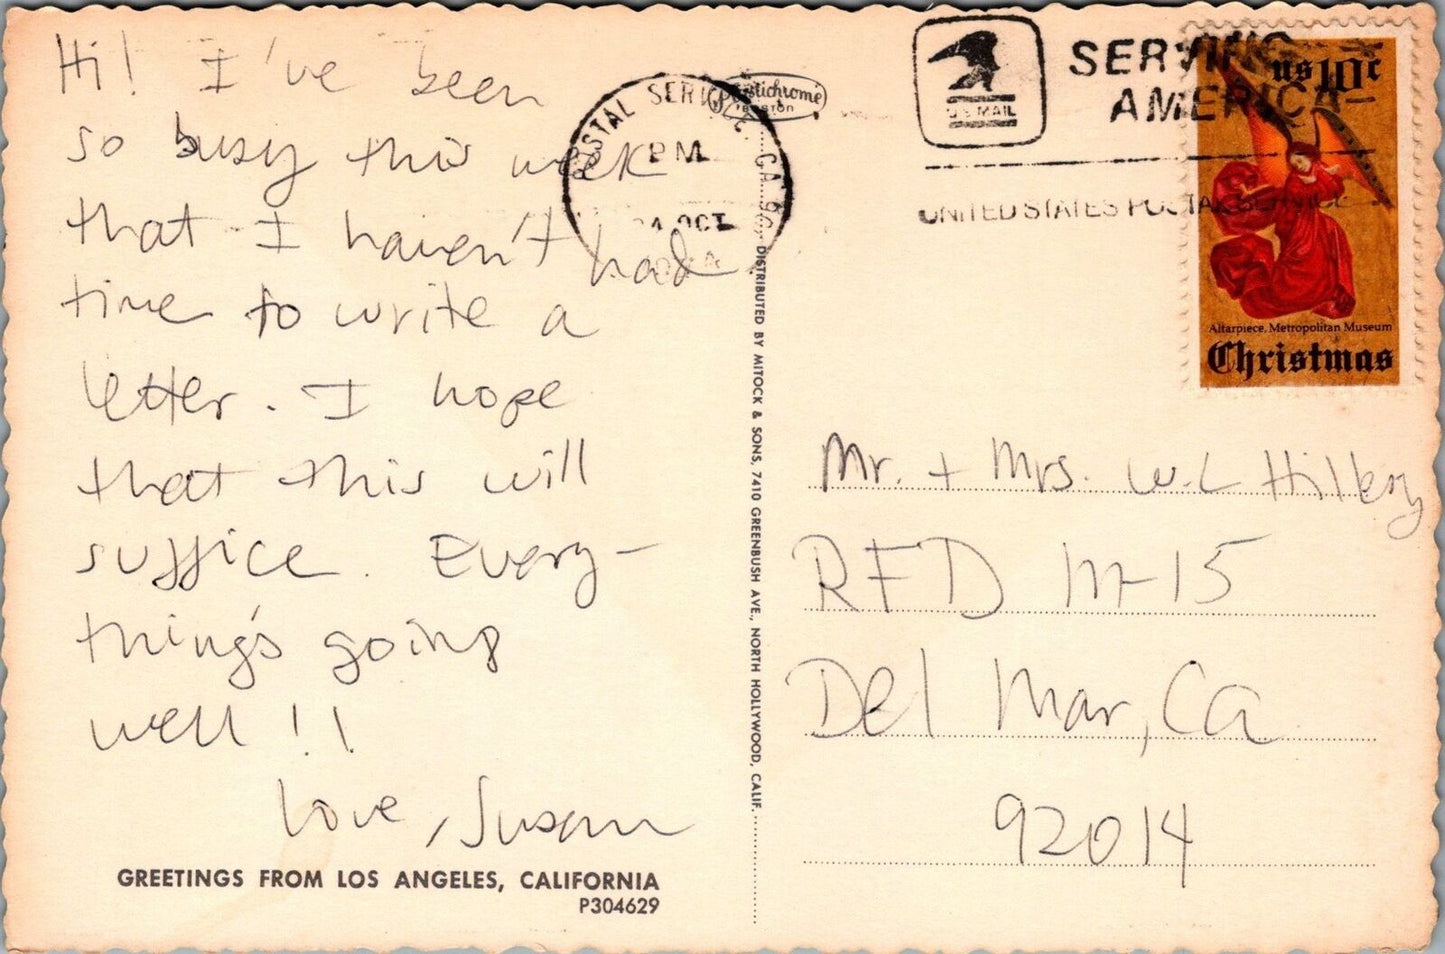 Hi! I've been
so busy this week
that I haven't had
time to write a
letter. I hope
that this will
suffice. Every-
thing's going
well!!
Love, Susan
GREETINGS FROM LOS ANGELES, CALIFORNIA
P304629
Plastichrome
BOSTON
POSTAL SERVICE, CA. 90
PM
24 OCT
DISTRIBUTED BY MITOCK & SONS, 7410 GREENBUSH AVE., NORTH HOLLYWOOD, CALIF.
U.S. MAIL
SERVING
AMERICA
UNITED STATES POSTAL SERVICE
US 10c
Altarpiece, Metropolitan Museum
Christmas
Mr. + Mrs. W.L Hillery
RFD M-15
Del Mar, Ca
92014